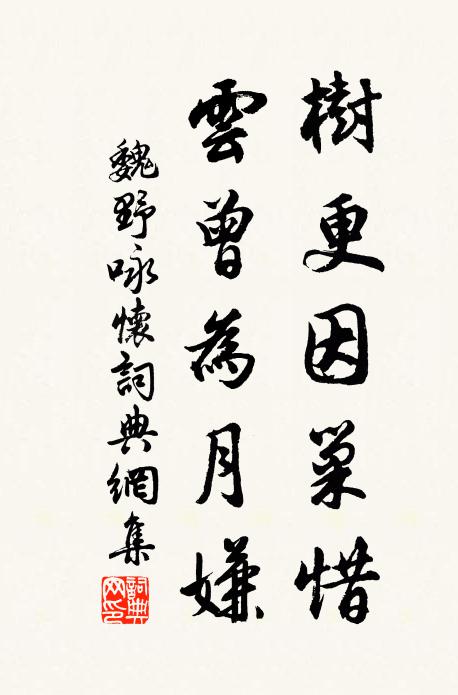 樹更因巢惜
雲曾為月嫌
魏野咏懷詞典網集
詞典网印